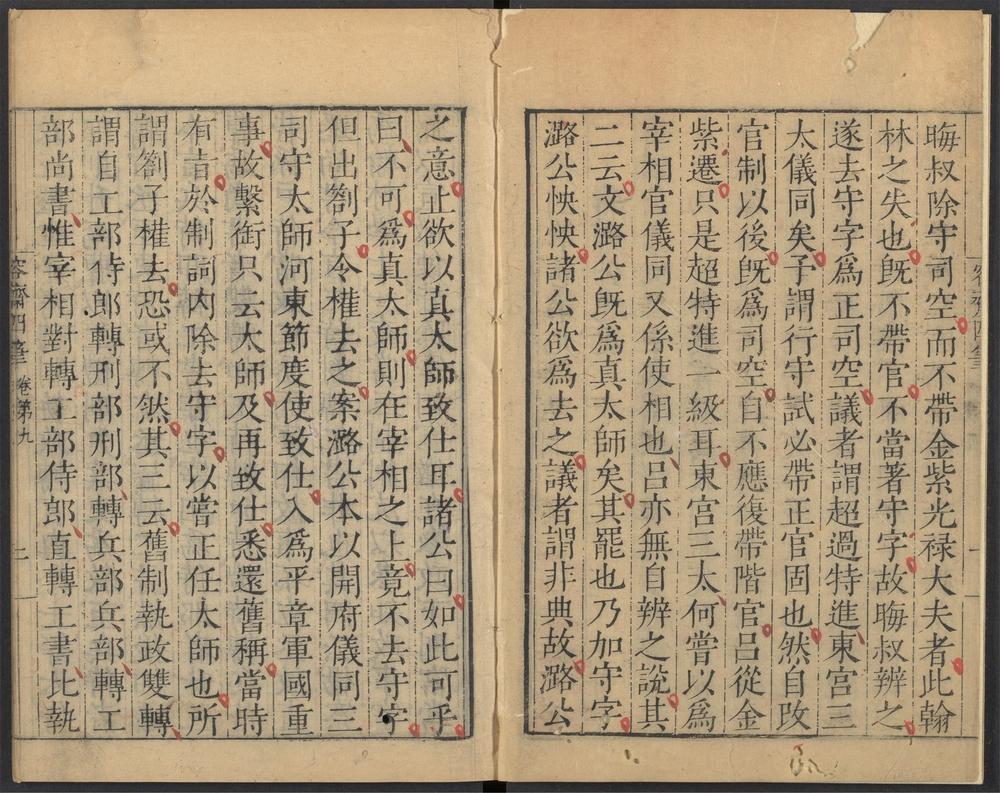 晦叔除守司空而不帶金紫光禄大夫者此翰
林之失也旣不帶官不當著守字故晦叔辨之
遂去守字爲正司空議者謂超過特進東宮三
太儀同矣子謂行守試必帶正官固也然自改
官制以後旣爲司空自不應復帶階官呂從金
紫遷只是超特進一級耳東宮三太何嘗以爲
宰相官儀同又係使相也呂亦無自辨之說其
二云文潞公旣爲真太師矣其罷也乃加守字
潞公怏怏諸公欲爲去之議者謂非典故潞公
之意止欲以真太師致仕耳諸公曰如此可乎
曰不可爲真太師則在宰相之上竟不去守字
但出劄子令權去之案潞公本以開府儀同三
司守太師河東節度使致仕入爲平章軍國重
事故繫銜只云太師及再致仕悉還舊稱當時
有旨於制詞內除去守字以嘗正任太師也所
謂劄子權去恐或不然其三云舊制執政雙轉
謂自工部侍郎轉刑部刑部轉兵部兵部轉工
部尚書惟宰相對轉工部侍郎直轉工書比執
容齋四筆 卷第九 二